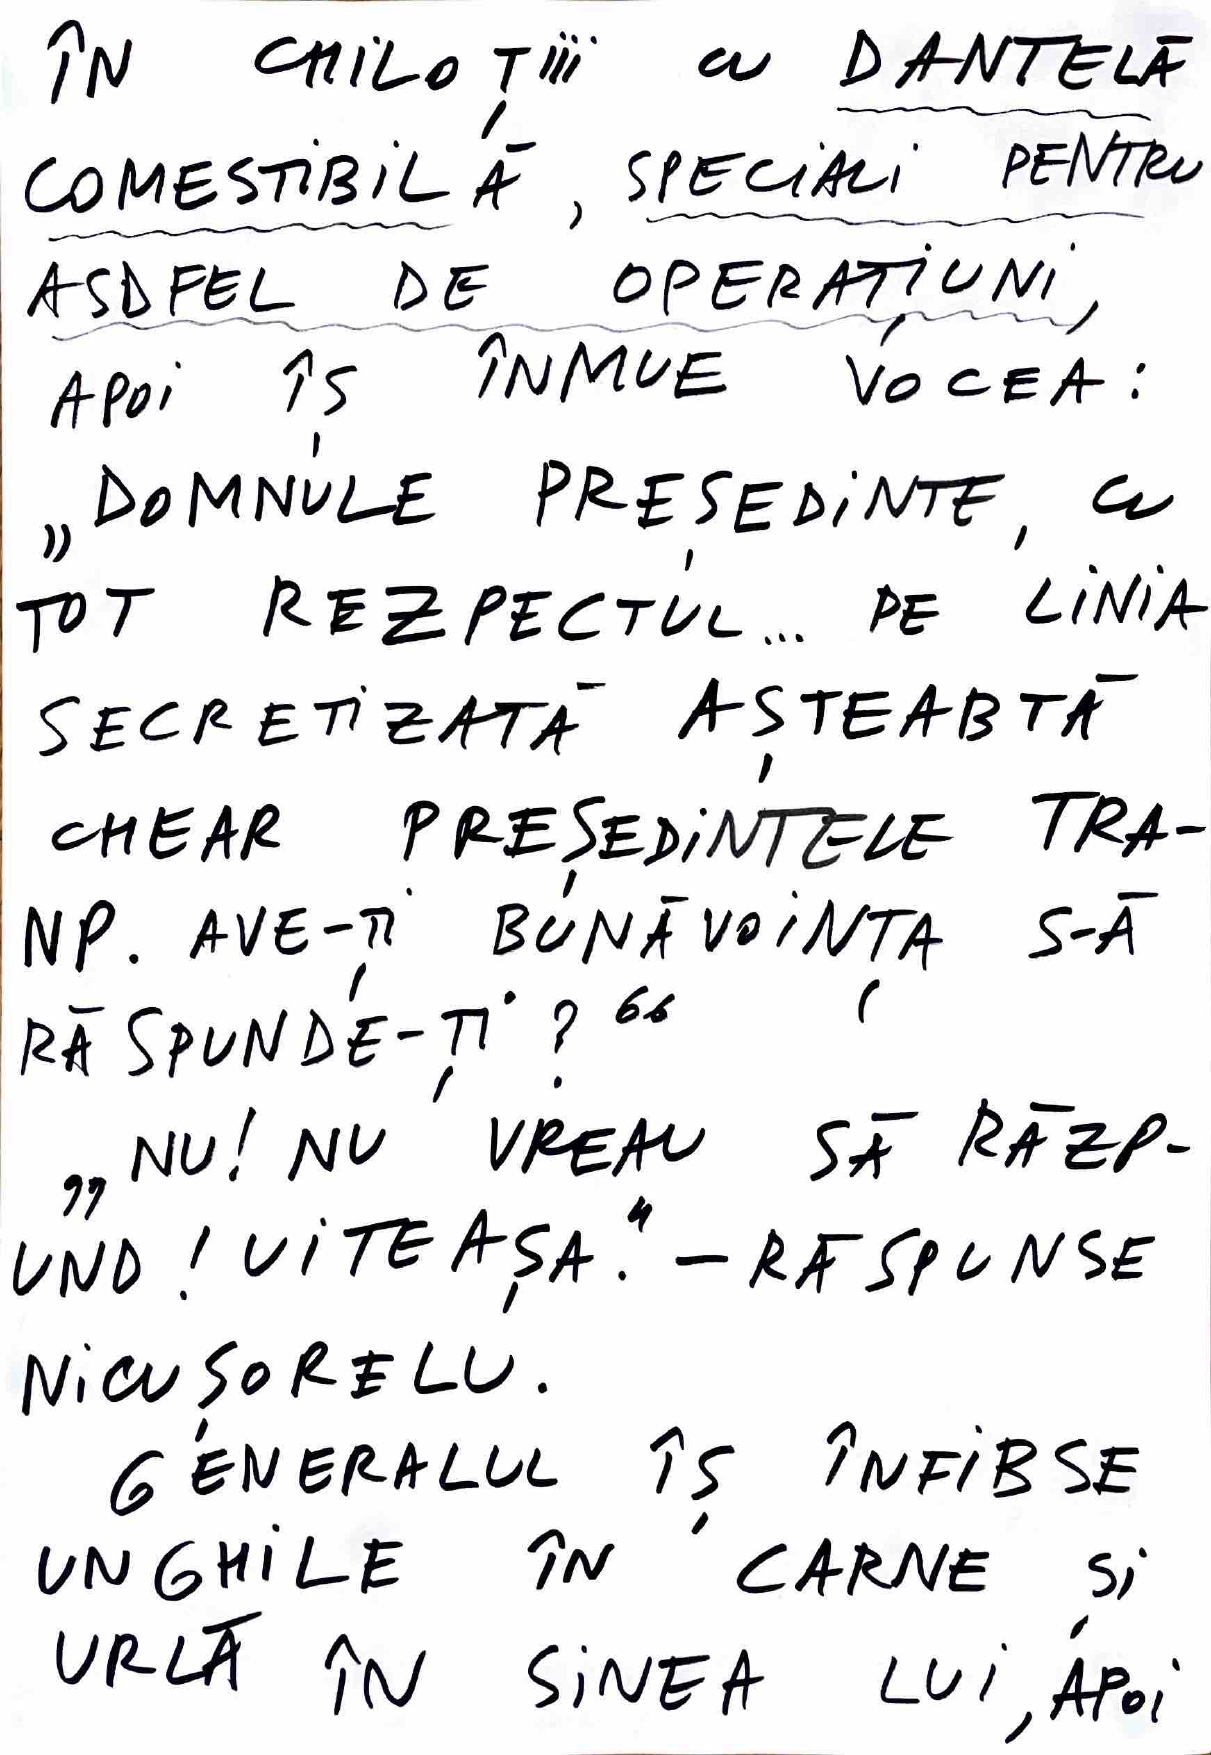 ÎN CHiLOȚiii CU DANTELĂ
COMESTIBiLĂ, SPECiALi PENTRU
ASDFEL DE OPERAȚiUNi,
APOi ÎȘ ÎNMUE VOCEA:
„DOMNULE PREȘEDiNTE, CU
TOT REZPECTUL... PE LiNiA
SECRETiZATĂ AȘTEABTĂ
CHEAR PREȘEDiNTELE TRA-
NP. AVE-ȚI BUNĂVOiNȚA S-Ă
RĂSPUNDE-ȚI?“
„NU! NU VREAU SĂ RĂZP-
UND! UiTE AȘA.“ – RĂSPUNSE
NiCUȘORELU.
GENERALUL ÎȘ ÎNFiBSE
UNGHiLE ÎN CARNE Și
URLĂ ÎN SiNEA LUi, APOi